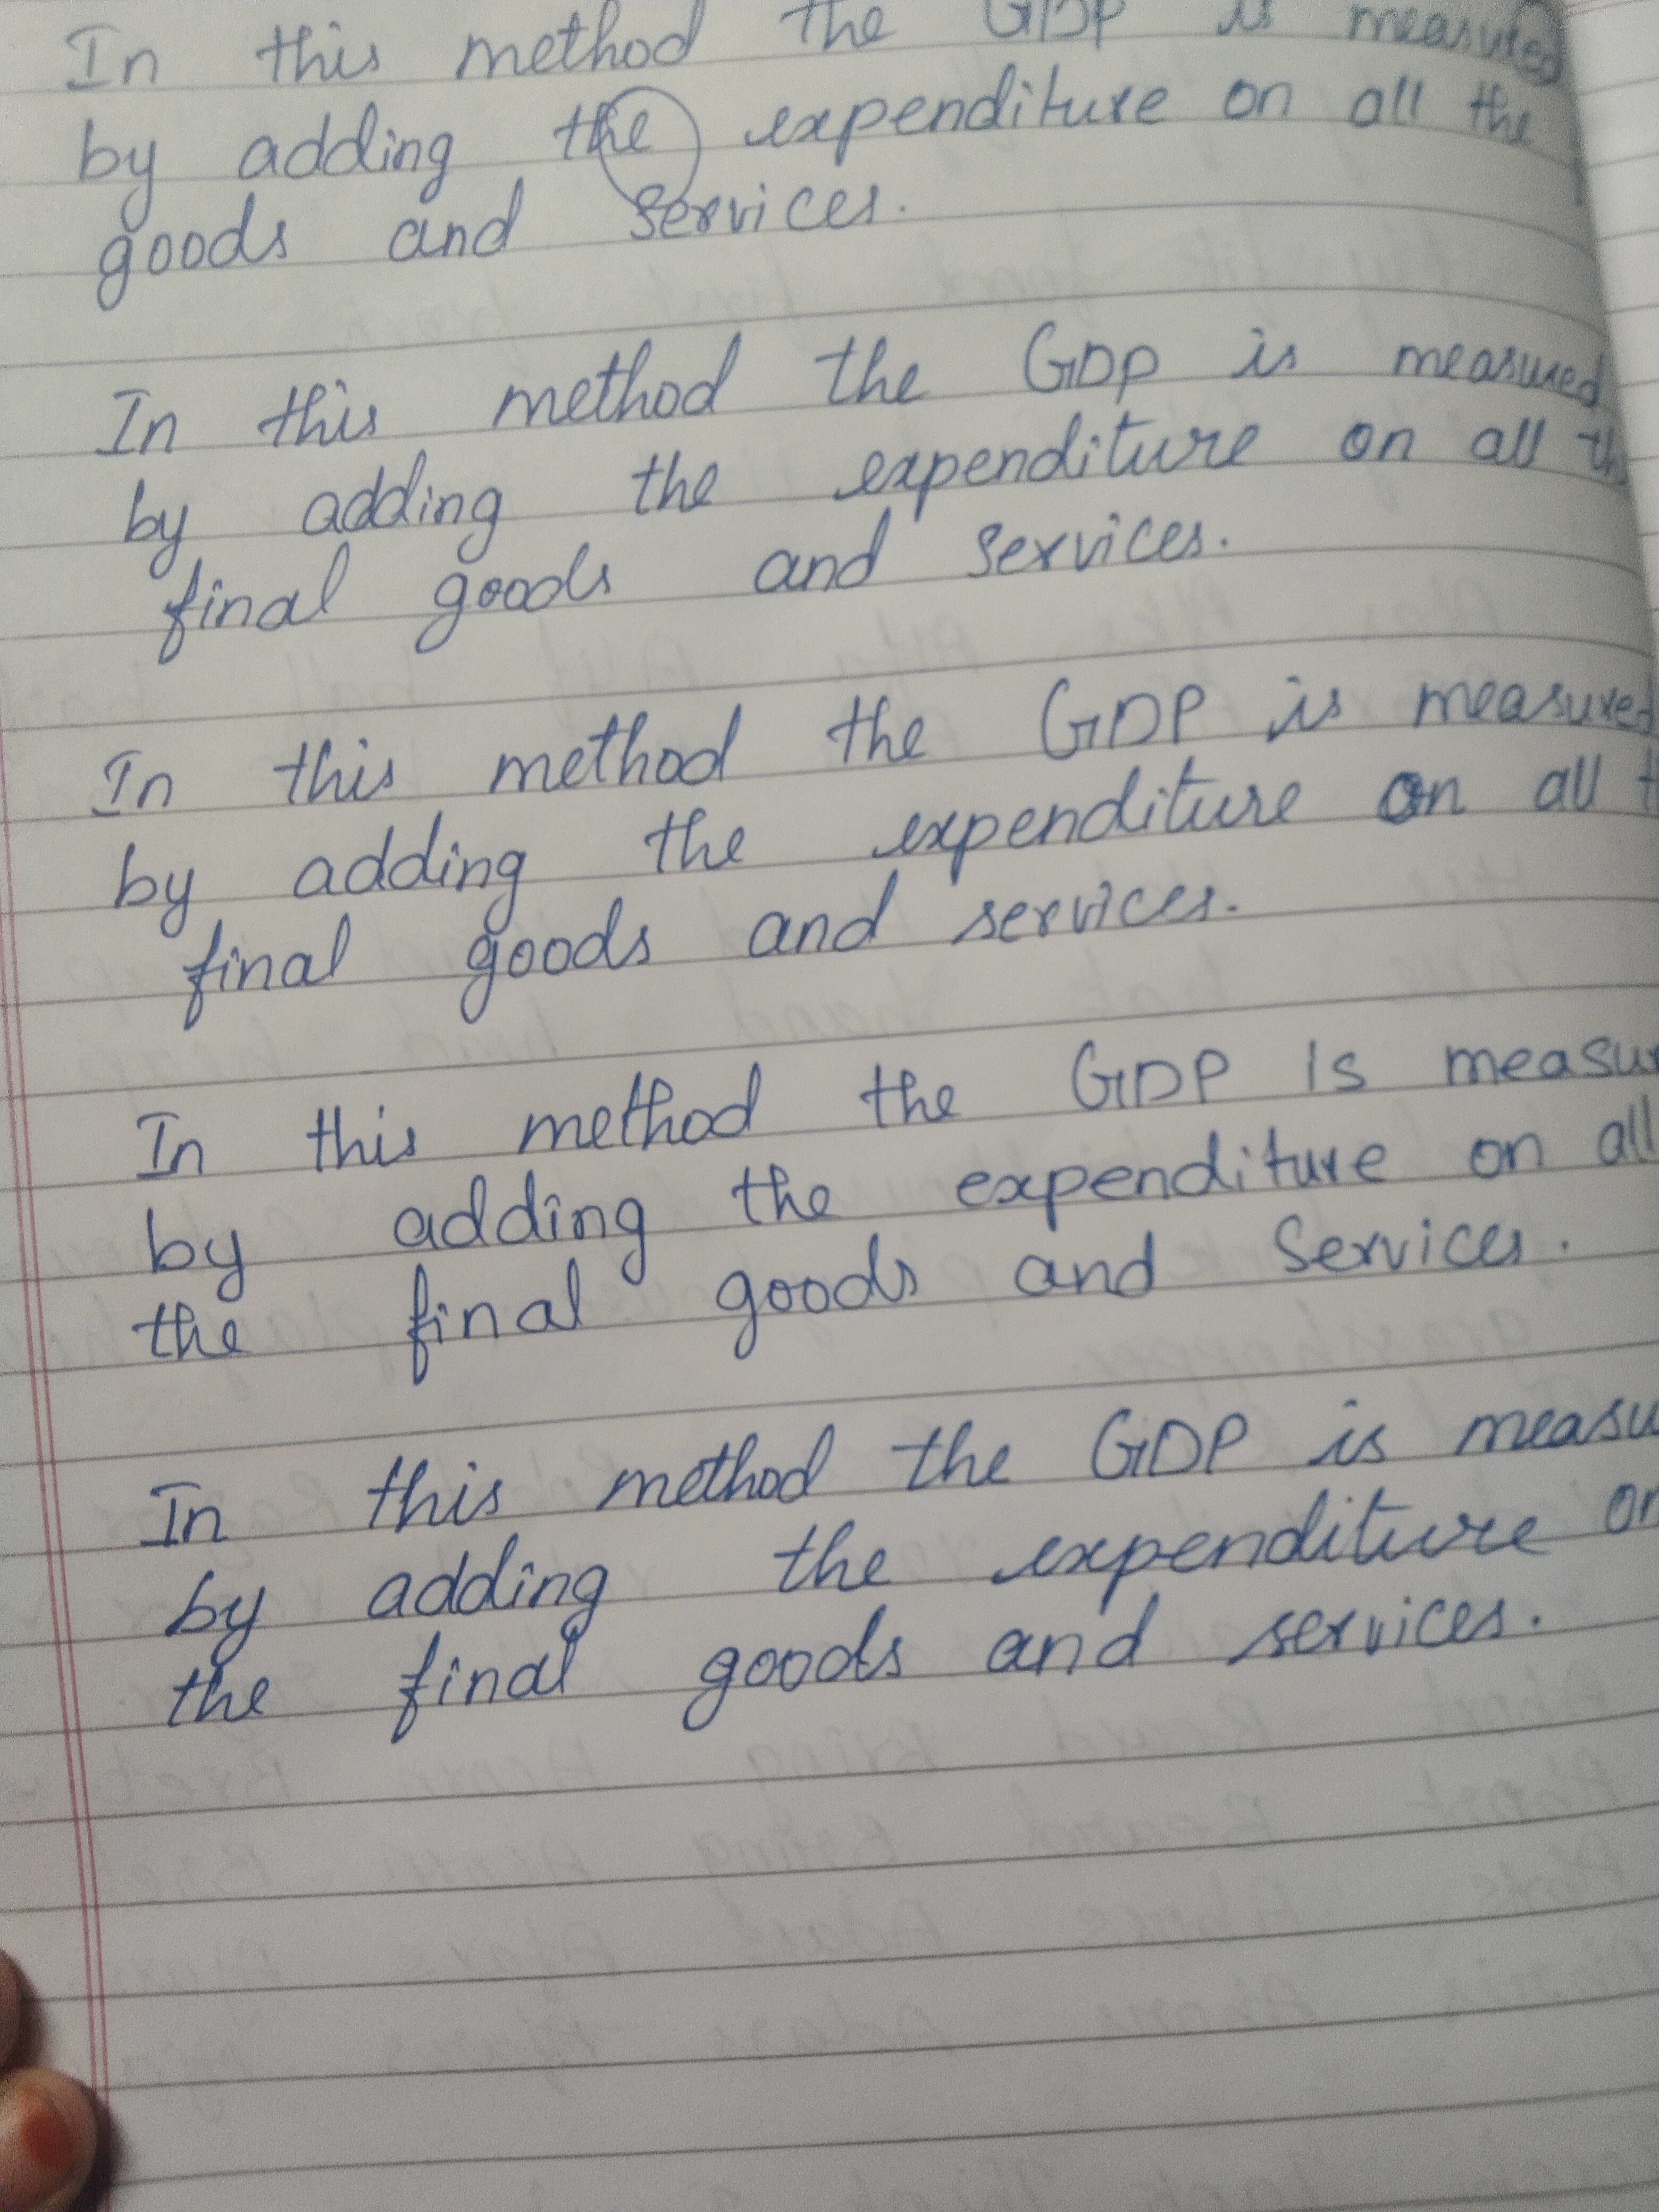 In this method the GDP is measured
by adding the expenditure on all the
goods and services.
In this method the GDP is measured
by adding the expenditure on all th
final goods and services.
In this method the GDP is measured
by adding the expenditure on all t
final goods and services.
In this method the GDP is measu
by adding the expenditure on all
the final goods and services.
In this method the GDP is measu
by adding the expenditure on
the final goods and services.